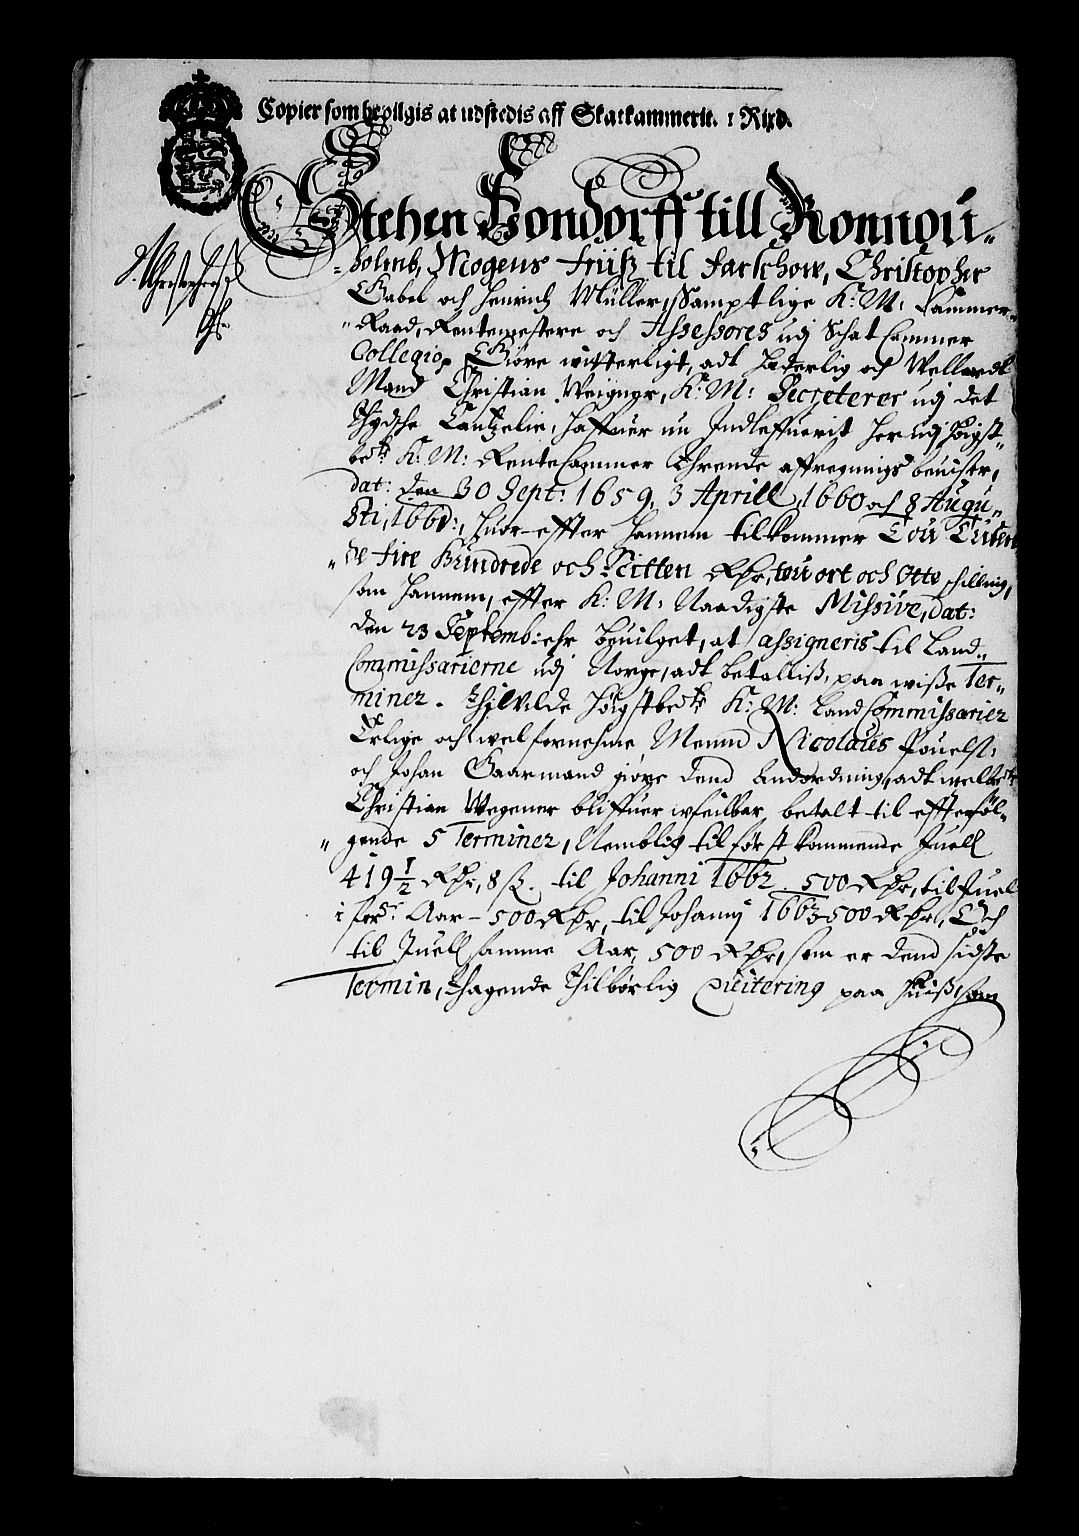 Copier som beuilgis at udstedis aff Skatkammerit. 1 Rixd.
Stehen Bondorff till Ronnou„
„holmb, Mogens Friisz til Farschow, Christopher
Gabel och Henrich Müller, Sampt lige K: M: Cammer„
„Raad, Rentemestere och Assessores udj Schat Cammer
Collegio, Giöre witterligt, adt Hæderlig och Wellærdt
Mand Christian Weigner, K: M: Secreterer udj det
Thydsche Cantzelie, haffuer nu Indleffuerit her udj höigst„
bete K: M: Rentecammer Thrende affregnings beuiser,
dat: den 30 Sept: 1659, 3 Aprill 1660 och 8 Augu„
sti, 1661:, Huor effter hannem tilkommer Tou Tusen
„de fire Hundrede och Nitten Rdr, tou ort och Otte schilling,
som hannem, effter K: M: Naadigste Missive, dat:
den 23 Septemb: ehr beuilget, at assigneris til Land„
Commissarierne udj Norge, adt betalliß, paa wiße Ter„
miner. Thilvilde höigstbete K: M: Land Commissarier
Erlige och welfornehme Mænd Nicolaus Pouelsz:
och Johan Gaarmand giöre dend Andordning, adt welbete
Christian Wegener bliffuer wfeilbar, betalt til effterföl„
„gende 5 Terminer, Nemblig til först kommende Juell
419 1/2 Rdr, 8 ß. til Johanni 1662 500 Rdr, til Juel
i forse Aar - 500 Rdr, til Johannj 1663 500 Rdr, Och
til Juell samme Aar, 500 Rdr, som er dend sidste
Termin, Thagende Thilbörlig Quitering paa huis, som